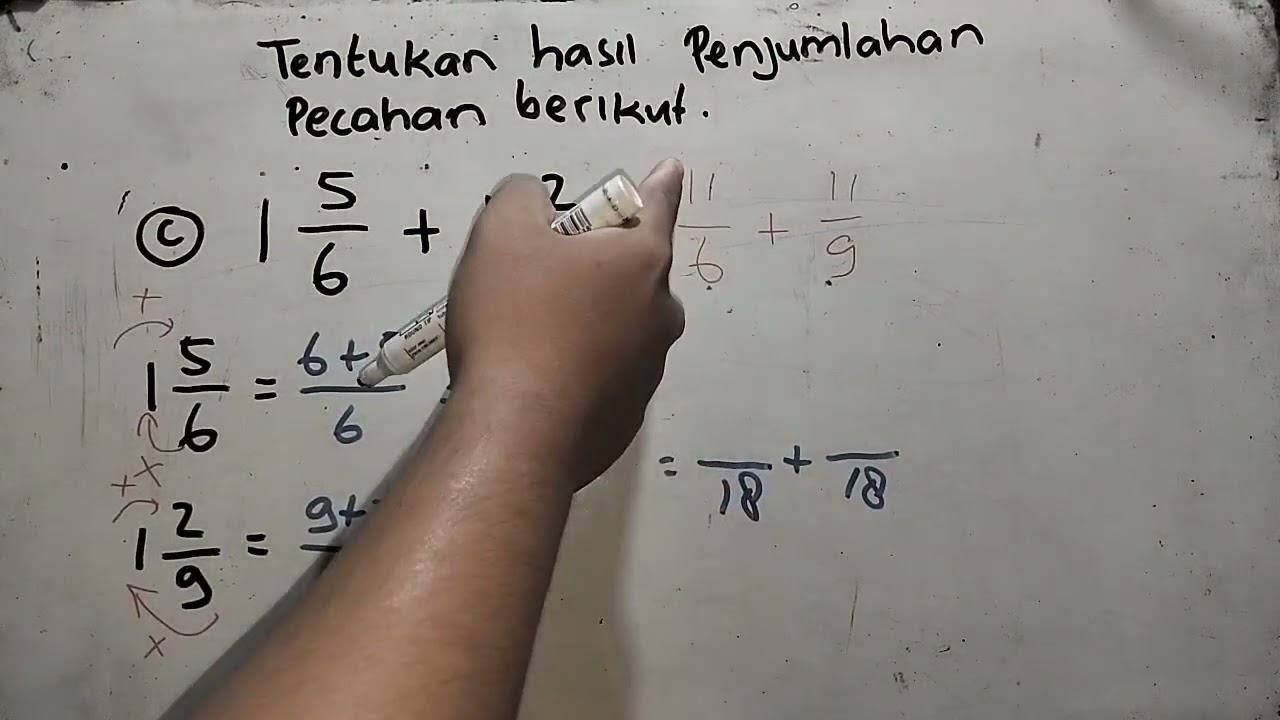 Tentukan hasil Penjumlahan
Pecahan berikut.
© 1 5/6 + 2 11/6 + 11/9
+
1 5/6 = 6+/6
x
= /18 + /18
+
1 2/9 = 9+
x